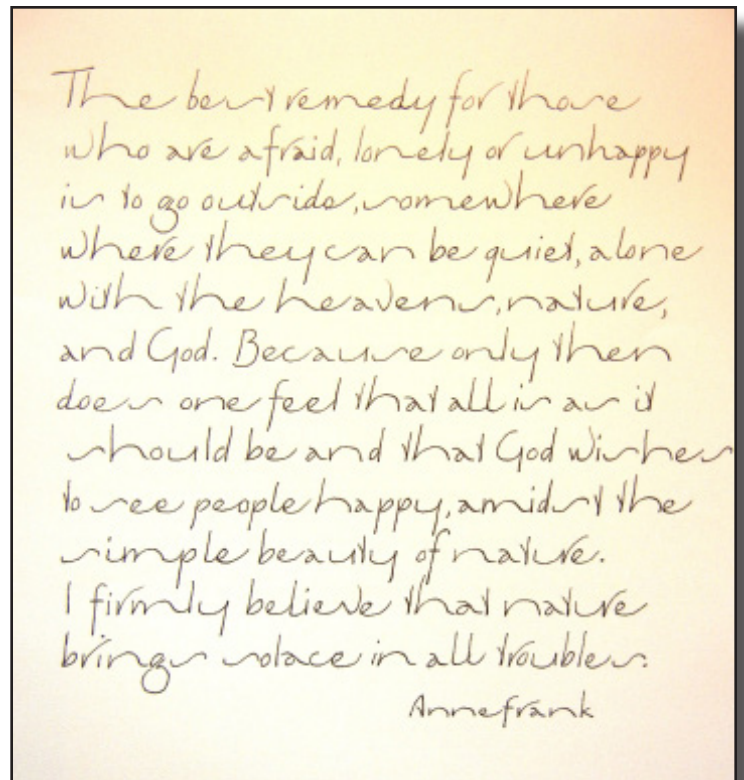 The best remedy for those
who are afraid, lonely or unhappy
is to go outside, somewhere
where they can be quiet, alone
with the heavens, nature,
and God. Because only then
does one feel that all is as it
should be and that God wishes
to see people happy, amidst the
simple beauty of nature.
I firmly believe that nature
brings solace in all troubles.
Anne frank